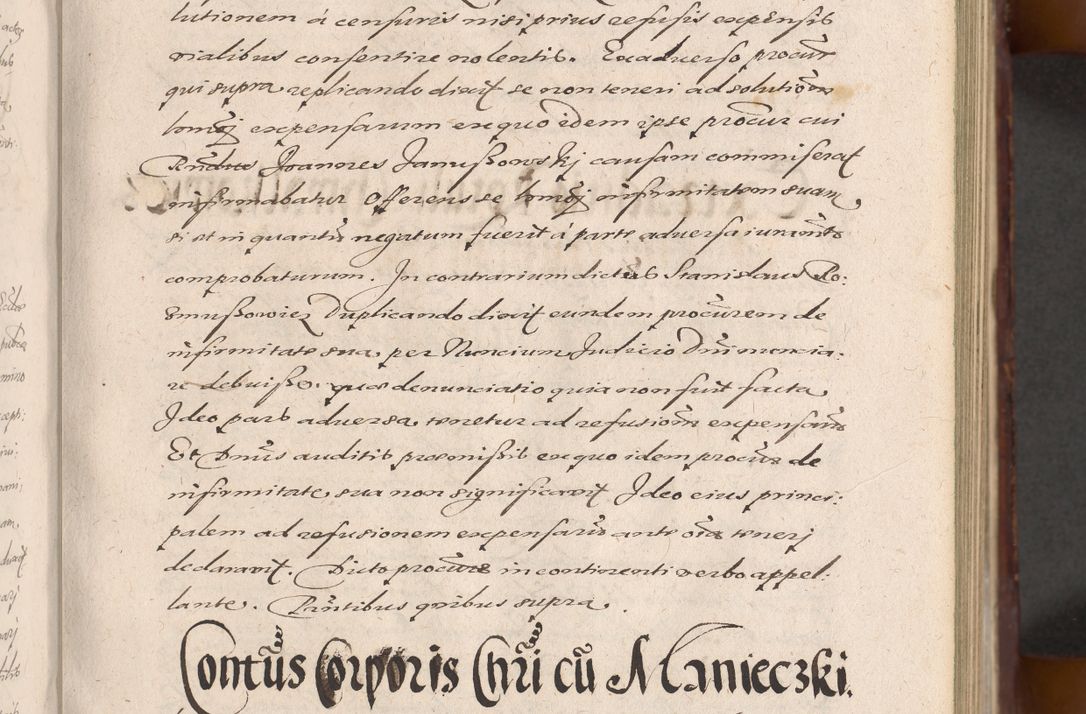 lutionem á censuris nisi prius refusis expensis
rialibus consentire nolentis. Ex adverso procur
qui supra replicando dixit se non teneri ad solutiom
expensarum ex quo idem ipse procur cui
Rndus Joannes Janussowskj causam commiserat
infirmabatur Offerens se infirmitatem suam
si et in quantu negatum fuerit á parte adversa iuramto
comprobaturum. In contrarium dictus Stanislaus Ro:
smussowicz Duplicando dixit eundem procurem de
infirmitate sua per Nuncium Judicio Dni nuncia-
re debuisse. quae denunciatio quia non fuit facta
Ideo pars adversa tenetur ad refusiom expensaru
Et Dnus auditis praemissis ex quo idem procur de
infirmitate sua non significavit Ideo eius princi:
palem ad refusionem expensaru ante oia tenerj
declaravit. Dicto procure in continenti verbo appel:
lante. Pntibus quibus supra.
Contus Corporis Chri cu Manieczki.